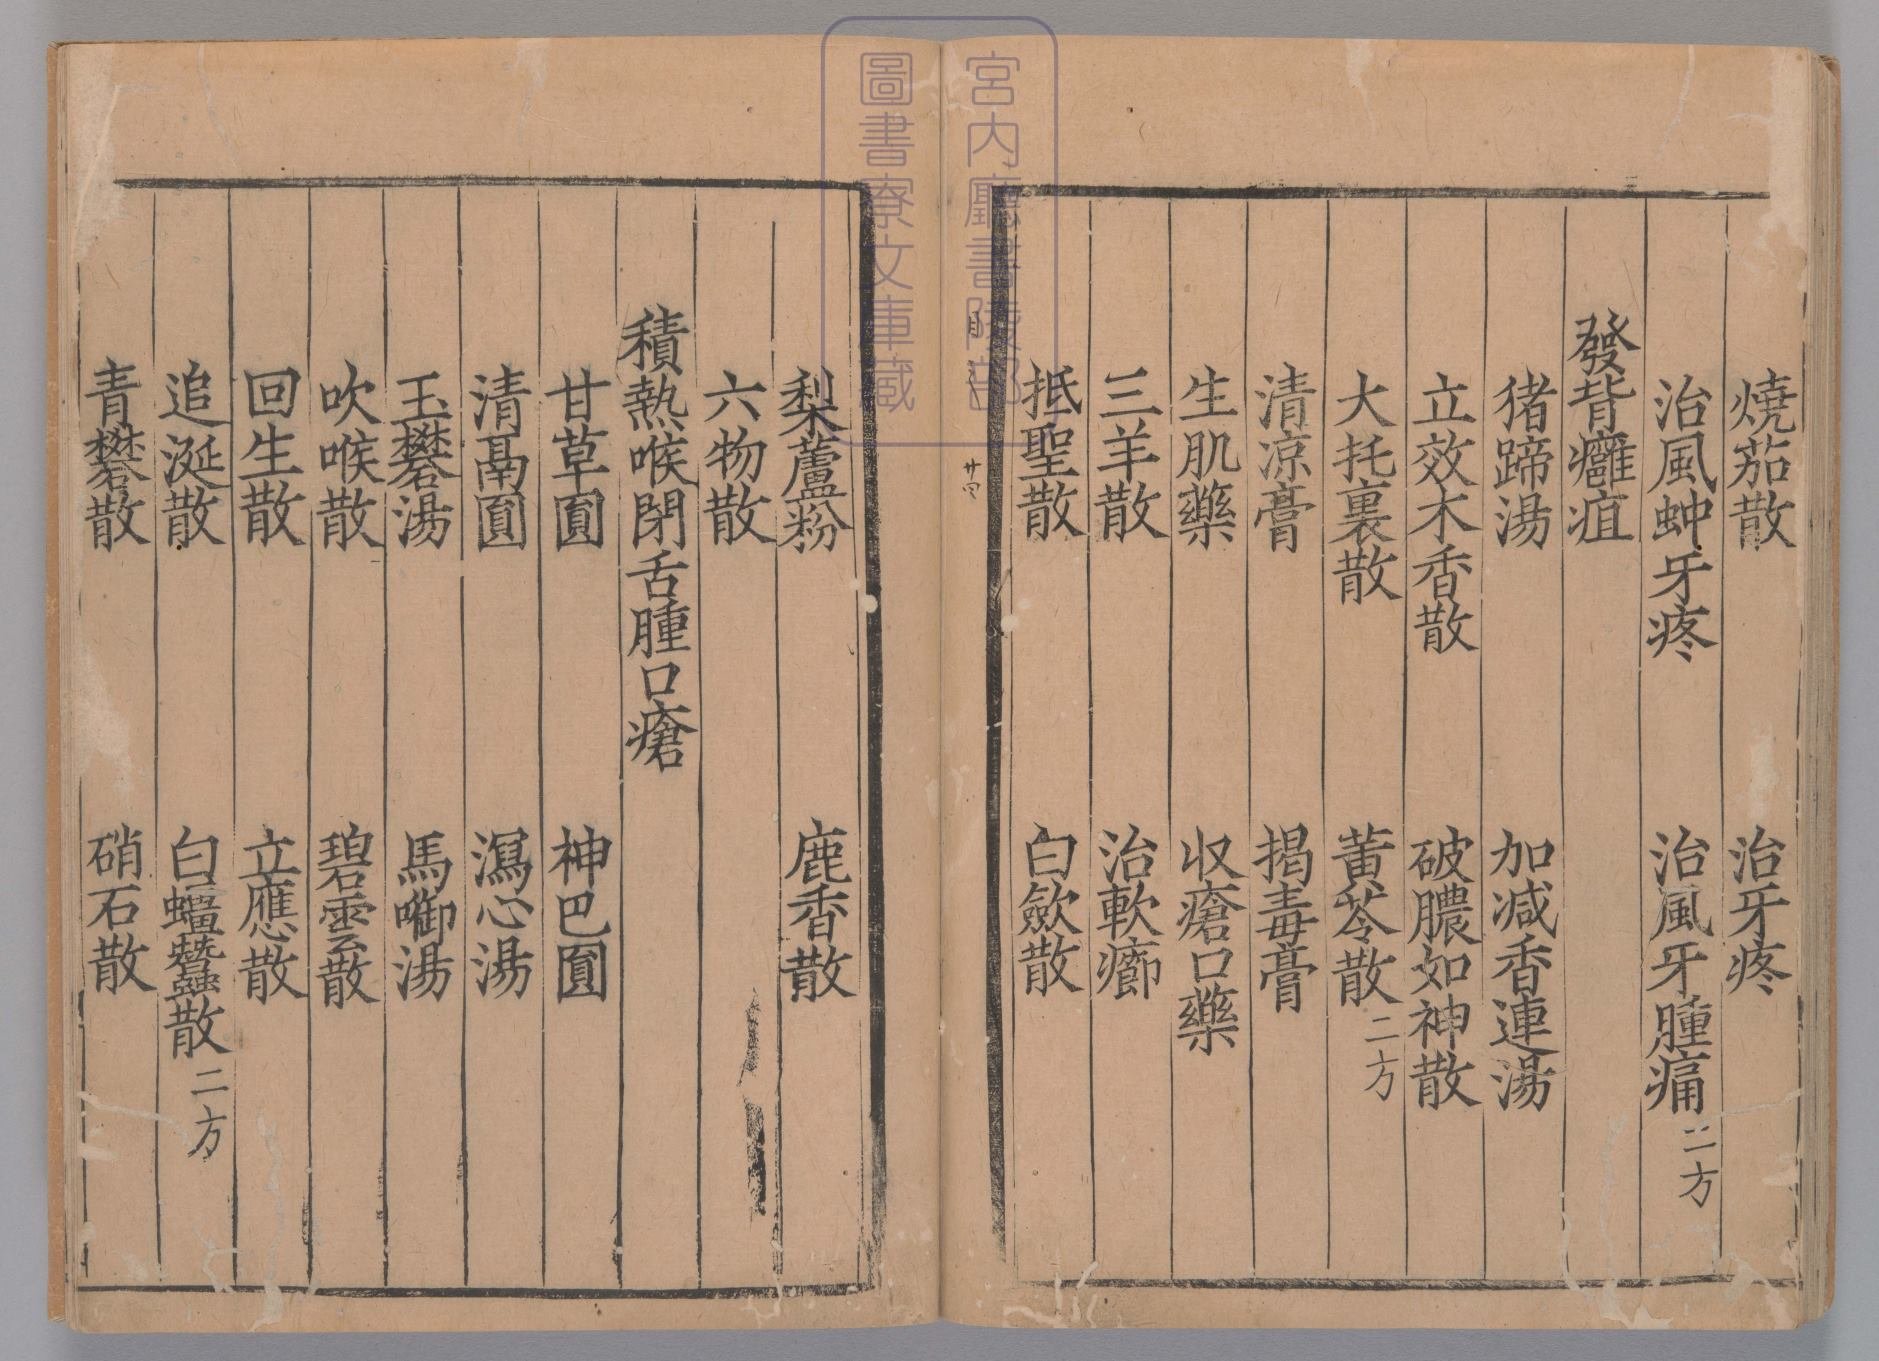 燒茄散 治牙疼
治風蚛牙疼 治風牙腫痛二方
發背癰疽
猪蹄湯 加減香連湯
立效木香散 破膿如神散
大托裏散 黄芩散二方
清凉膏 揭毒膏
生肌藥 収瘡口藥
三羊散 治軟癤
抵聖散 白歛散
梨蘆粉 鹿香散
六物散
積熱喉閉舌腫口瘡
甘草圓 神巴圓
清鬲圓 瀉心湯
玉礬湯 馬啣湯
吹喉散 碧雲散
回生散 立應散
追涎散 白殭蠶散二方
青礬散 硝石散
宮内廳書陵部
圖書寮文庫蔵